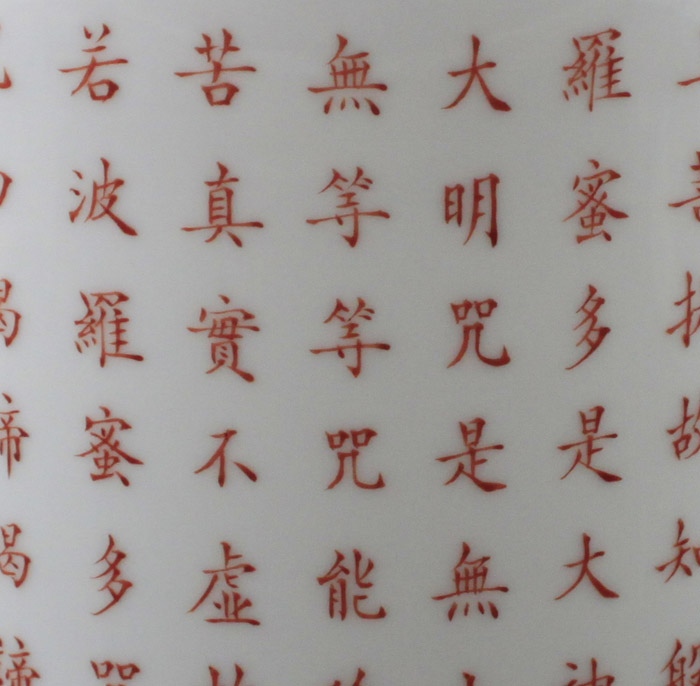 故知般
羅蜜多是大
大明咒是無
無等等咒能
苦真實不虚
若波羅蜜多咒